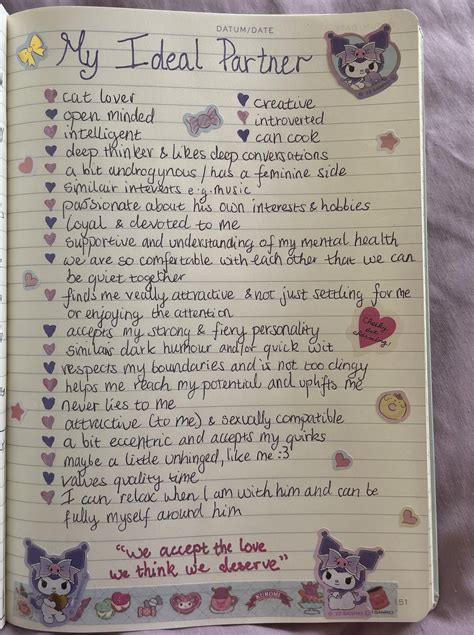 DATUM/DATE
My Ideal Partner
cat lover
creative
open minded
introverted
intelligent
can cook
deep thinker & likes deep conversations
a bit androgynous / has a feminine side
similair interests e.g. music
passionate about his own interests & hobbies
loyal & devoted to me
supportive and understanding of my mental health
we are so comfortable with each other that we can
be quiet together
finds me really attractive & not just settling for me
or enjoying the attention
accepts my strong & fiery personality
similar dark humour and/or quick wit
respects my boundaries and is not too clingy
helps me reach my potential and uplifts me
never lies to me
attractive (to me) & sexually compatible
a bit eccentric and accepts my quirks
maybe a little unhinged, like me :3
values quality time
I can relax when I am with him and can be
fully myself around him
Cheeky
but
charming!
"we accept the love
we think we deserve"
KUROMI
151